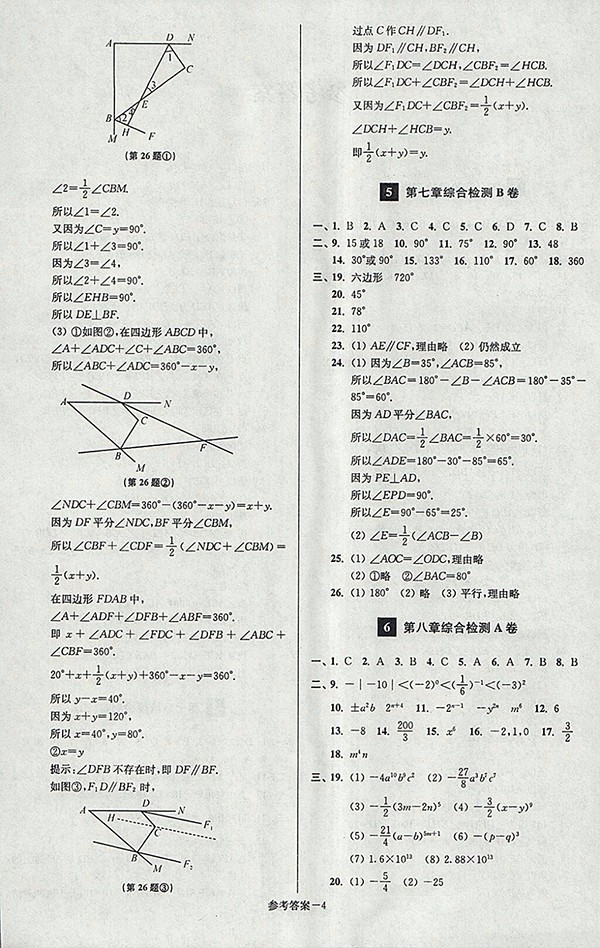 A D N
1
C
3
E
4
B 2
H F
M
(第26题①)
∠2=1/2∠CBM.
所以∠1=∠2.
又因为∠C=y=90°.
所以∠1+∠3=90°.
因为∠3=∠4,
所以∠2+∠4=90°.
所以∠EHB=90°.
所以 DE⊥BF.
(3) ①如图②,在四边形 ABCD 中,
∠A+∠ADC+∠C+∠ABC=360°,
所以∠ABC+∠ADC=360°-x-y,
A D N
C
B F
M
(第26题②)
∠NDC+∠CBM=360°-(360°-x-y)=x+y.
因为 DF 平分∠NDC,BF 平分∠CBM,
所以∠CBF+∠CDF=1/2(∠NDC+∠CBM)=
1/2(x+y).
在四边形 FDAB 中,
∠A+∠ADF+∠DFB+∠ABF=360°.
即 x+∠ADC+∠FDC+∠DFB+∠ABC+
∠CBF=360°.
20°+x+1/2(x+y)+360°-x-y=360°.
所以 y-x=40°.
因为 x+y=120°,
所以 x=40°,y=80°.
②x=y
提示:∠DFB 不存在时,即 DF∥BF.
如图③,F₁D∥BF₂ 时,
A D N
H F₁
C
B
M F₂
(第26题③)
过点 C 作 CH∥DF₁.
因为 DF₁∥CH,BF₂∥CH,
所以∠F₁DC=∠DCH,∠CBF₂=∠HCB.
所以∠F₁DC+∠CBF₂=∠DCH+∠HCB.
又因为∠F₁DC+∠CBF₂=1/2(x+y).
∠DCH+∠HCB=y.
即1/2(x+y)=y.
5 第七章综合检测 B 卷
一、1. B 2. A 3. C 4. C 5. C 6. D 7. C 8. B
二、9. 15或18 10. 90° 11. 75° 12. 90° 13. 48
14. 30°或90° 15. 133° 16. 110° 17. 60° 18. 360
三、19. 六边形 720°
20. 45°
21. 78°
22. 110°
23. (1) AE∥CF,理由略 (2) 仍然成立
24. (1) 因为∠B=35°,∠ACB=85°,
所以∠BAC=180°-∠B-∠ACB=180°-35°-
85°=60°.
因为 AD 平分∠BAC,
所以∠DAC=1/2∠BAC=1/2×60°=30°.
所以∠ADE=180°-30°-85°=65°.
因为 PE⊥AD,
所以∠EPD=90°.
所以∠E=90°-65°=25°.
(2) ∠E=1/2(∠ACB-∠B)
25. (1) ∠AOC=∠ODC,理由略
(2) ①略 ②∠BAC=80°
26. (1) 180° (2) 略 (3) 平行,理由略
6 第八章综合检测 A 卷
一、1. C 2. A 3. B 4. C 5. A 6. A 7. B 8. B
二、9. -|-10|<(-2)⁰<(1/6)⁻¹<(-3)²
10. ±a²b 2ⁿ⁺⁴ 11. -2ⁿ⁻¹ -y²ⁿ m⁶ 12. 6
13. -8 14. 200/3 15. x⁶ 16. -2,1,0 17. 3/2
18. m⁴n
三、19. (1) -4a¹⁰b⁹c² (2) -27/8a³b⁷c⁷
(3) -1/2(3m-2n)⁵ (4) -3/2(x-y)⁹
(5) -21/4(a-b)⁵ᵐ⁺¹ (6) -(p-q)³
(7) 1.6×10¹³ (8) 2.88×10¹³
20. (1) -5/4 (2) -25
参考答案-4